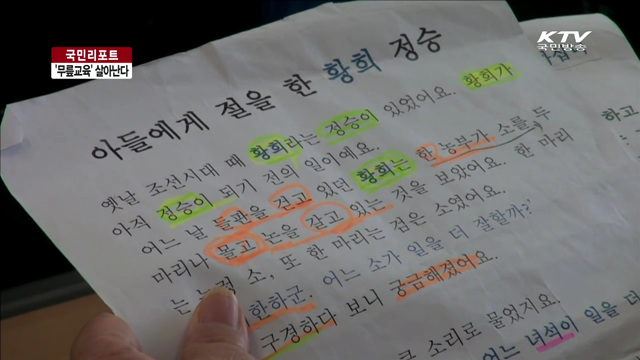 국민리포트
'무릎교육' 살아난다
KTV
국민방송
아들에게 절을 한 황희 정승
옛날 조선시대 때 황희라는 정승이 있었어요. 황희가
아직 정승이 되기 전의 일이에요.
어느 날 들판을 걷고 있던 황희는 한 농부가 소를 두
마리나 몰고 논을 갈고 있는 것을 보았어요. 한 마리
는 소, 또 한 마리는 검은 소였어요.
한하군. 어느 소가 일을 더 잘할까?'
구경하다 보니 궁금해졌어요.
큰 소리로 물었지요.
어느 녀석이 일을 더
하고